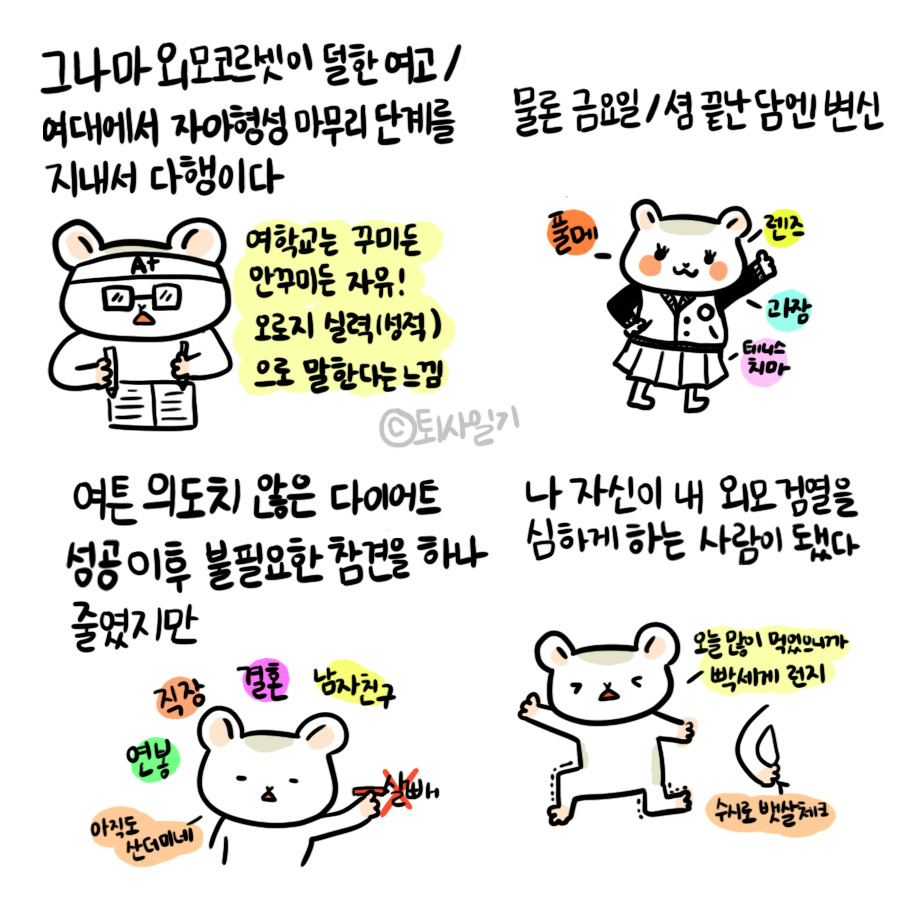 그나마 외모코르셋이 덜한 여고/
여대에서 자아형성 마무리 단계를
지내서 다행이다
A+
여학교는 꾸미든
안꾸미든 자유!
오로지 실력(성적)
으로 말한다는 느낌
물론 금요일/셤 끝난 담엔 변신
풀메
렌즈
과잠
테니스
치마
©토사일기
여튼 의도치 않은 다이어트
성공 이후 불필요한 참견을 하나
줄였지만
직장
결혼
남자친구
연봉
살빼
아직도
산더미네
나 자신이 내 외모 검열을
심하게 하는 사람이 됐다
오늘 많이 먹었으니까
빡세게 런지
수시로 뱃살체크